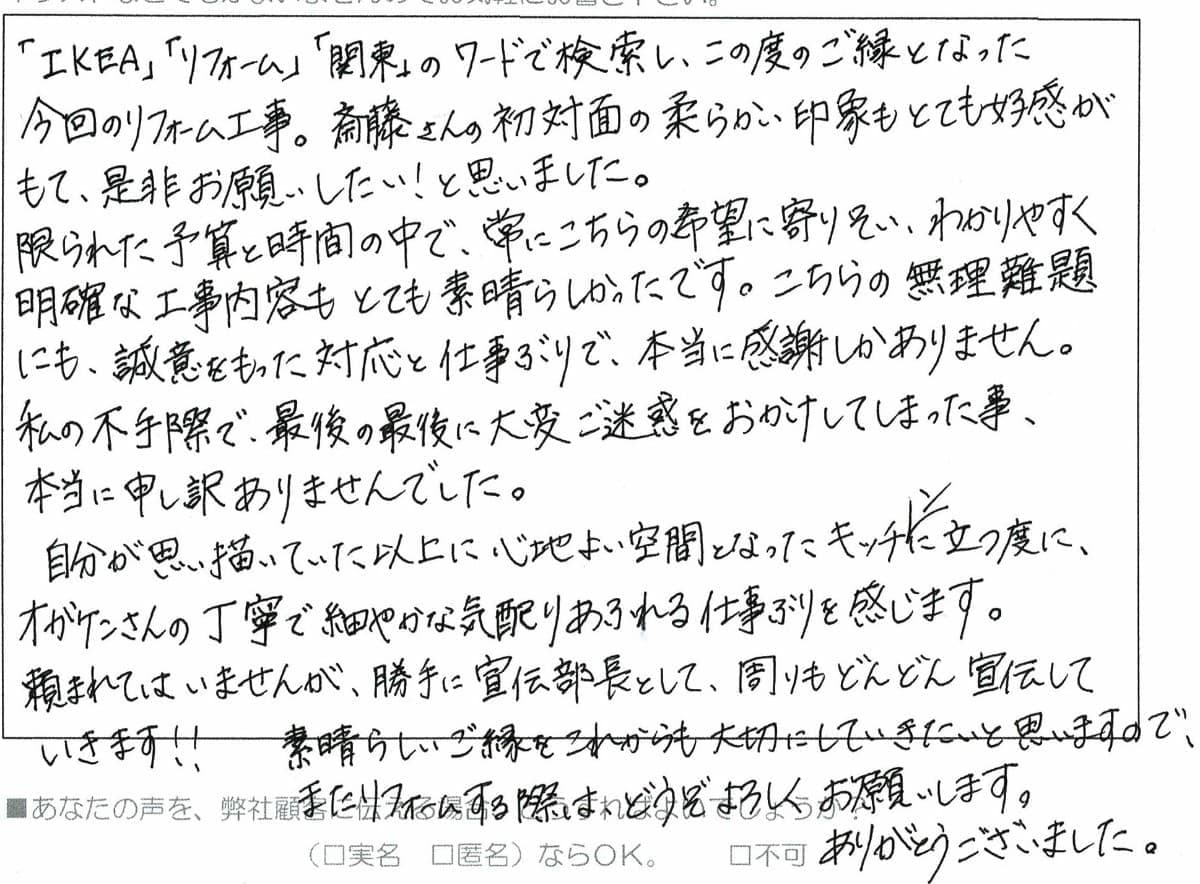 「IKEA」「リフォーム」「関東」のワードで検索し、この度のご縁となった
今回のリフォーム工事。斎藤さんの初対面の柔らかい印象もとても好感が
もて、是非お願いしたい!と思いました。
限られた予算と時間の中で、常にこちらの希望に寄りそい、わかりやすく
明確な工事内容もとても素晴らしかったです。こちらの無理難題
にも、誠意をもった対応と仕事ぶりで、本当に感謝しかありません。
私の不手際で、最後の最後に大変ご迷惑をおかけしてしまった事、
本当に申し訳ありませんでした。
自分が思い描いていた以上に心地よい空間となったキッチンに立つ度に、
オガケンさんの丁寧で細やかな気配りあふれる仕事ぶりを感じます。
頼まれてはいませんが、勝手に宣伝部長として、周りもどんどん宣伝して
いきます!! 素晴らしいご縁をこれからも大切にしていきたいと思いますので、
またリフォームする際は、どうぞよろしくお願いします。
■あなたの声を、弊社顧客に伝える場合
ありがとうございました。
(□実名 □匿名)ならOK。 □不可